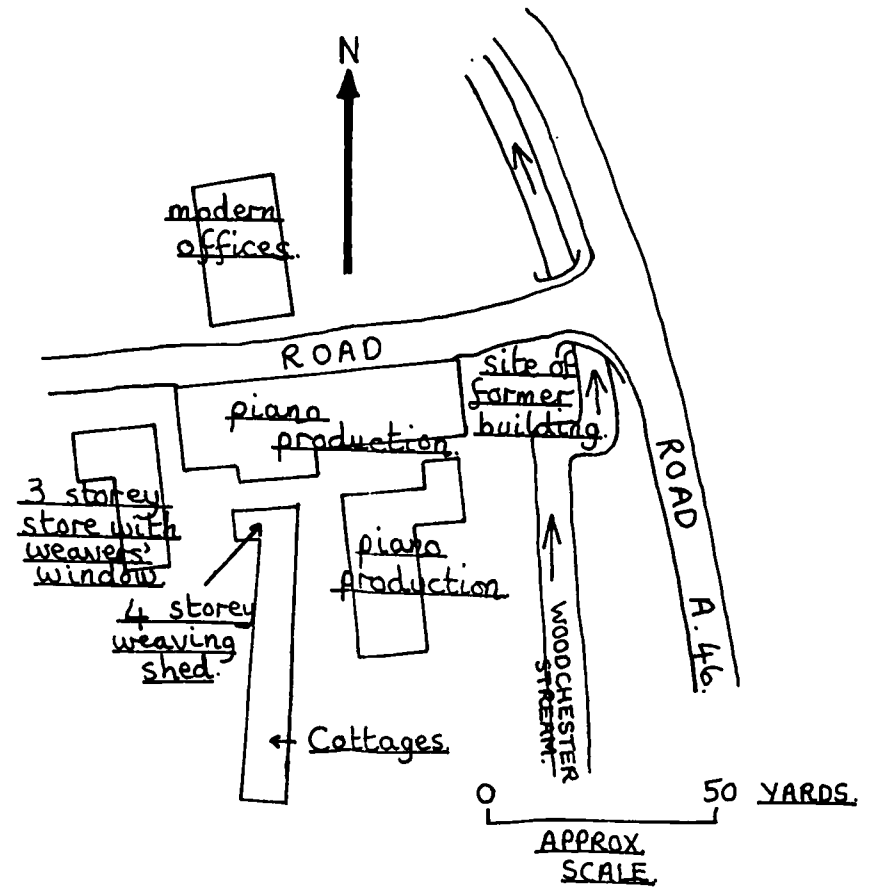 N
modern
offices.
ROAD
site of
former
building.
piano
production.
ROAD A.46.
3 storey
store with
weavers'
window
piano
production
4 storey
weaving
shed.
WOODCHESTER
STREAM.
Cottages
0 50 YARDS.
APPROX
SCALE